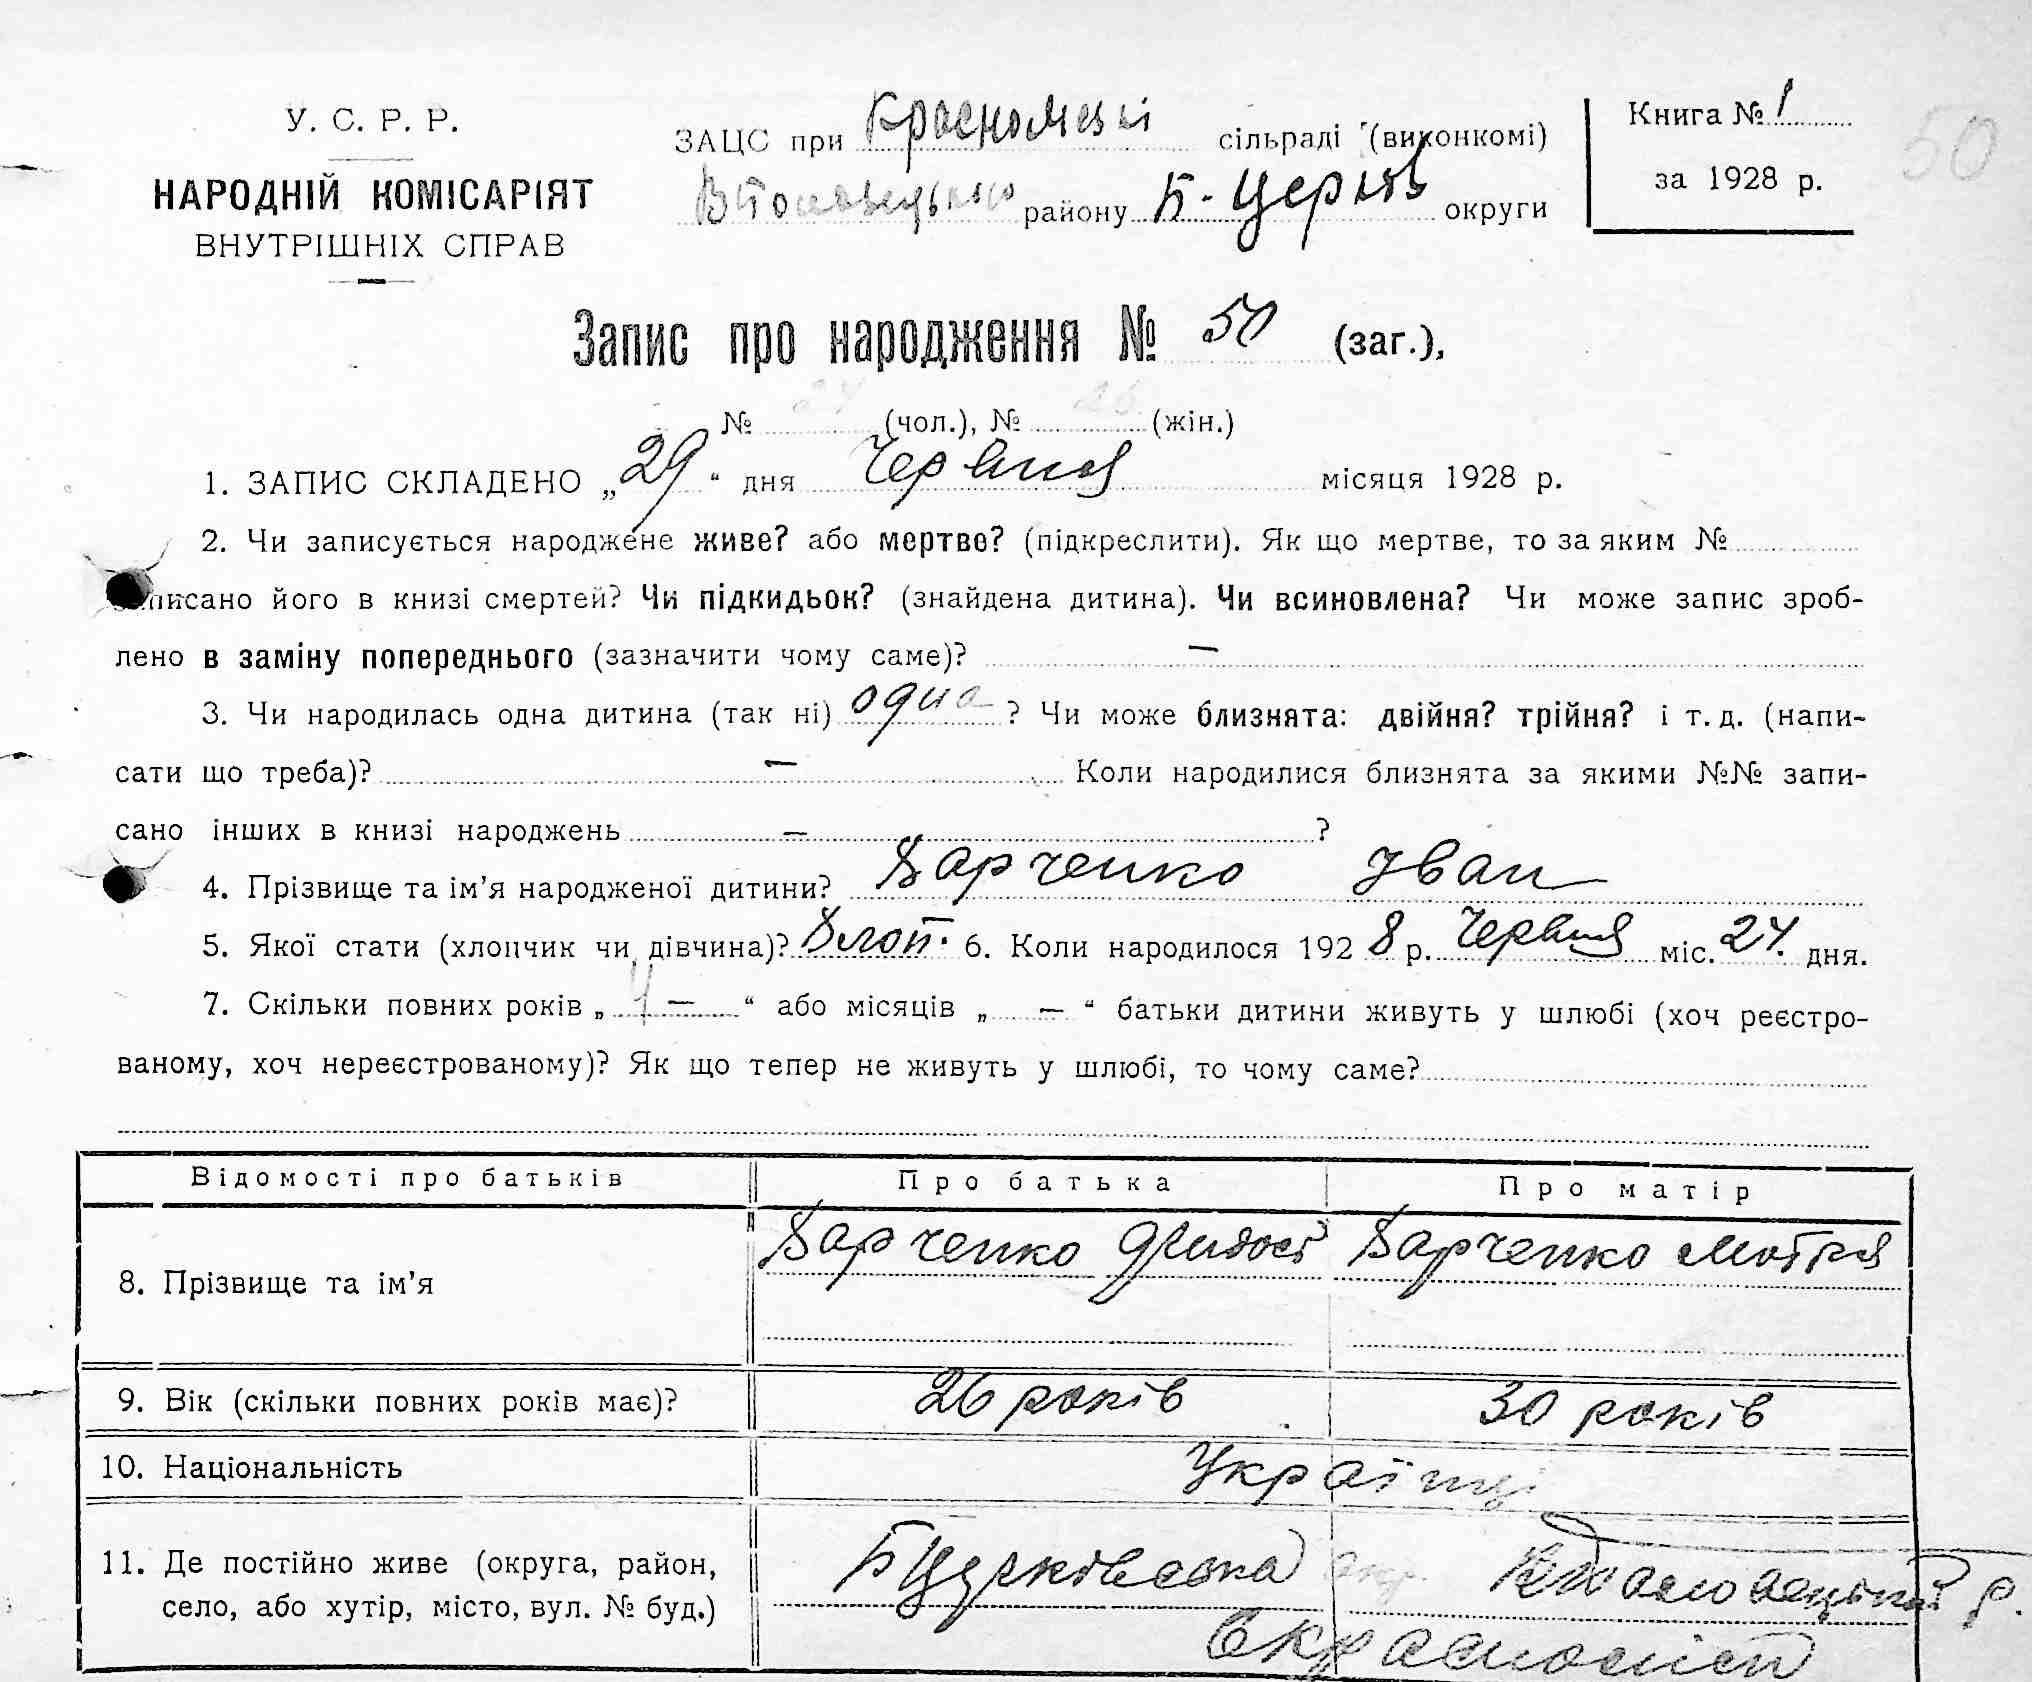 У. С. Р. Р.
НАРОДНІЙ КОМІСАРІЯТ
ВНУТРІШНІХ СПРАВ
ЗАЦС при сільраді (виконкомі)
району Б. Церків округи
Книга № 1
за 1928 р.
50
Запис про народження № 50 (заг.),
№ 24 (чол.), № 26 (жін.)
1. ЗАПИС СКЛАДЕНО „29“ дня Червня місяця 1928 р.
2. Чи записується народжене живе? або мертве? (підкреслити). Як що мертве, то за яким №
записано його в книзі смертей? Чи підкидьок? (знайдена дитина). Чи всиновлена? Чи може запис зроб-
лено в заміну попереднього (зазначити чому саме)? —
3. Чи народилась одна дитина (так ні) одна ? Чи може близнята: двійня? трійня? і т. д. (напи-
сати що треба)? — Коли народилися близнята за якими №№ запи-
сано інших в книзі народжень — ?
4. Прізвище та ім’я народженої дитини? Харченко Іван
5. Якої стати (хлопчик чи дівчина)? Хлоп. 6. Коли народилося 1928 р. Червня міс. 24. дня.
7. Скільки повних років „ 4 — “ або місяців „ — “ батьки дитини живуть у шлюбі (хоч реєстро-
ваному, хоч нереєстрованому)? Як що тепер не живуть у шлюбі, то чому саме?
Відомості про батьків Про батька Про матір
8. Прізвище та ім’я Харченко Харченко Мотря
9. Вік (скільки повних років має)? 26 років 30 років
10. Національність Українці
11. Де постійно живе (округа, район,
село, або хутір, місто, вул. № буд.)
Б Церківська окр. р.